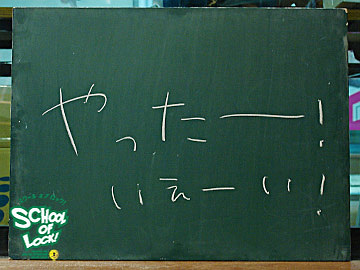 やったー!
いぇーい!
SCHOOL
OF
LOCK!